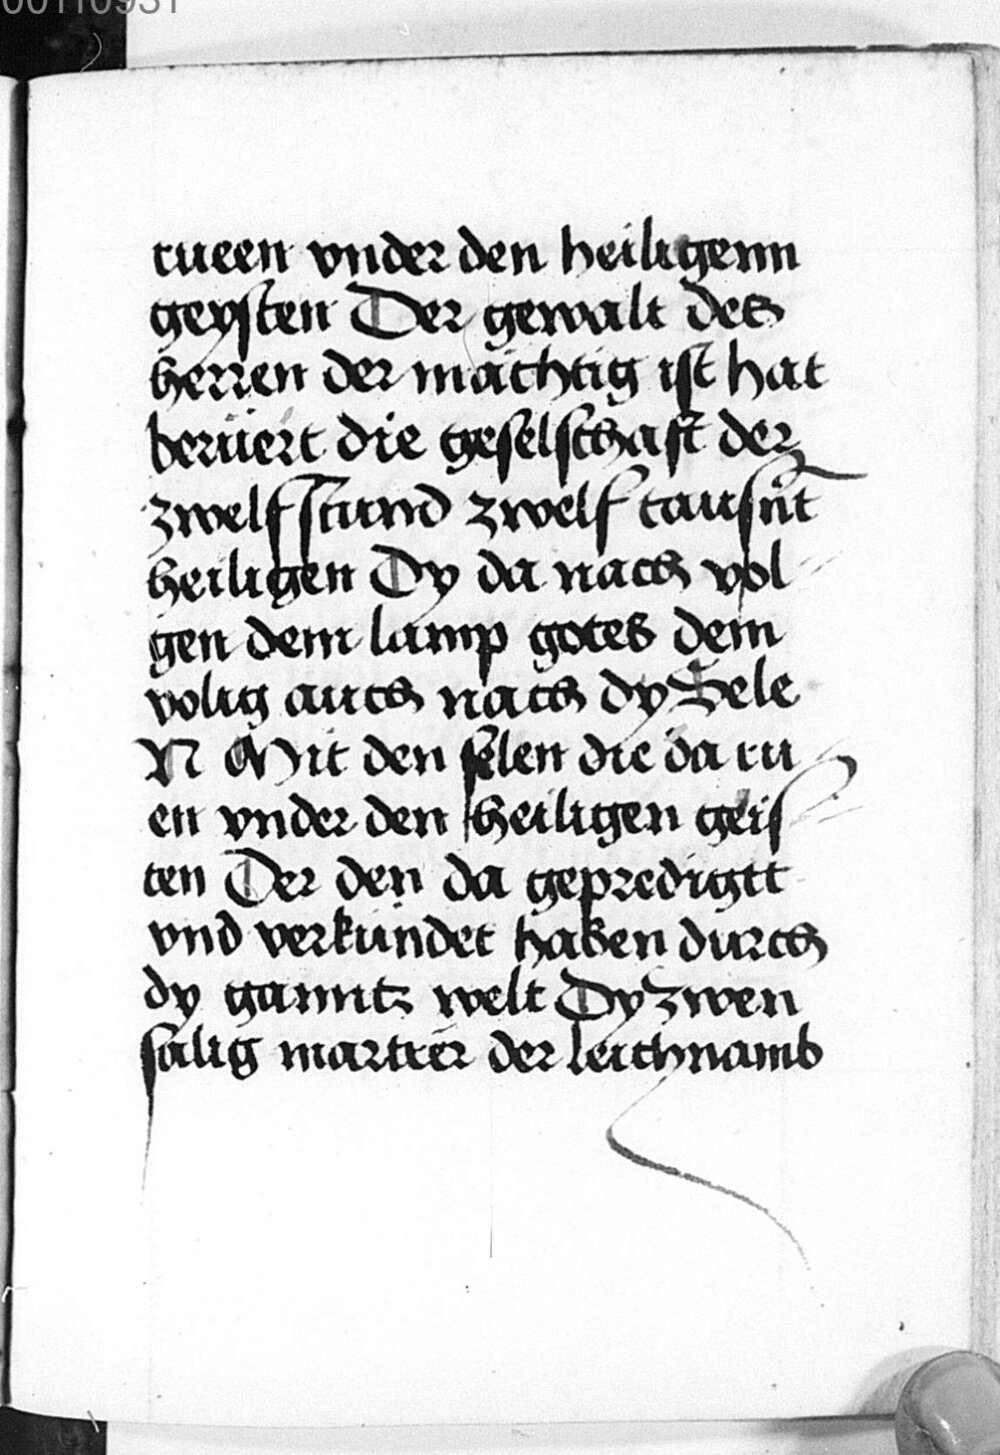 00110931
rueen vnder den heiligenn
geysten Der gewalt des
herren der mächtig ist hat
berüert die geselschaft der
zwelf stund zwelf tausnt
heiligen Dy da nach vol
gen dem lamp gotes dem
volig auch nach dy Sele
N Mit den selen die da ru
en vnder den heiligen geis
ten Der den da gepredigtt
vnd verkündet haben durch
dy ganntz welt Dy zwen
sälig martrer der leichnamb